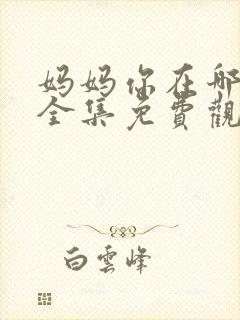 妈妈你在哪
全集免費觀
白雲峰